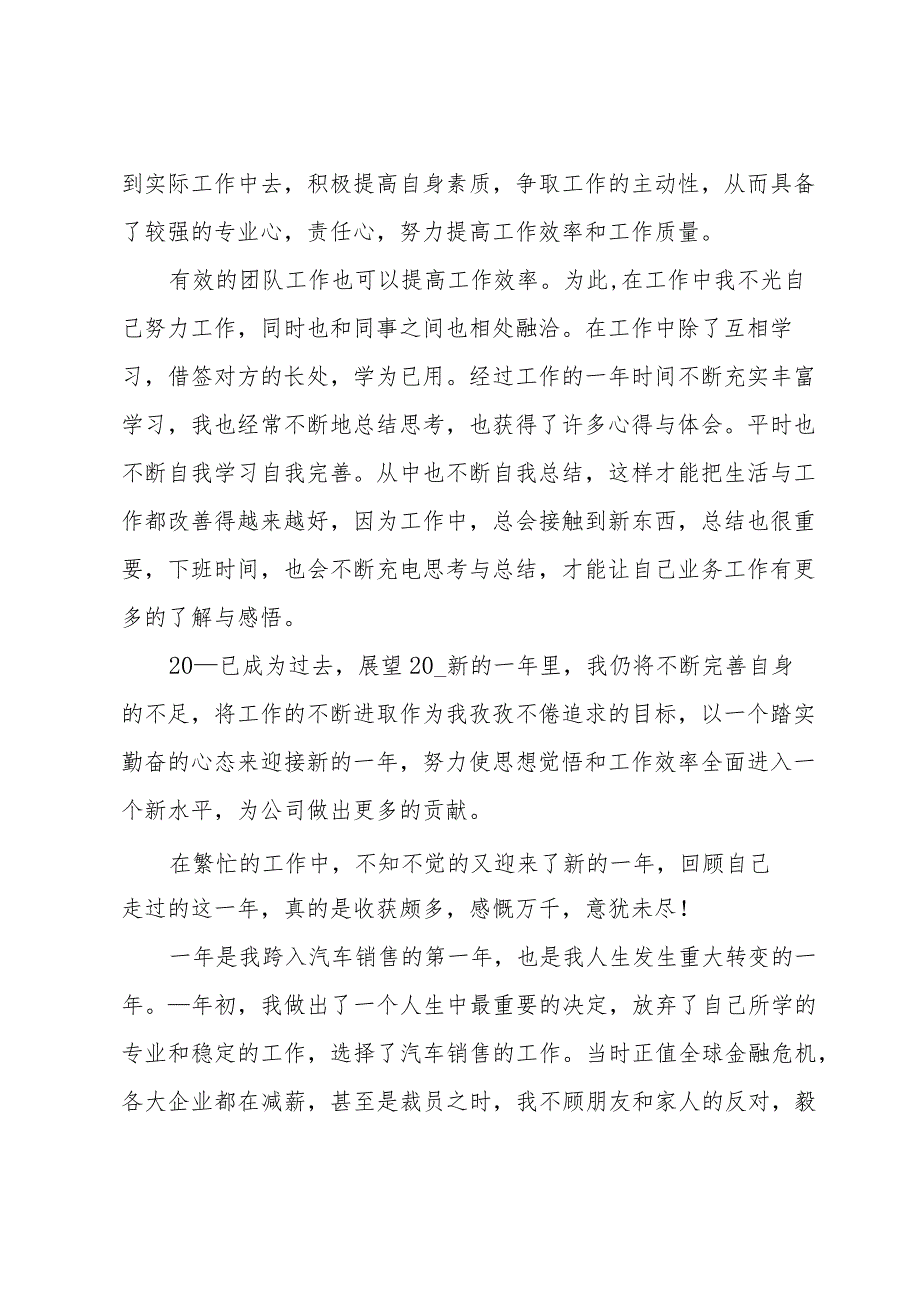 到实际工作中去，积极提高自身素质，争取工作的主动性，从而具备
了较强的专业心，责任心，努力提高工作效率和工作质量。
有效的团队工作也可以提高工作效率。为此,在工作中我不光自
己努力工作，同时也和同事之间也相处融洽。在工作中除了互相学
习，借签对方的长处，学为已用。经过工作的一年时间不断充实丰富
学习，我也经常不断地总结思考，也获得了许多心得与体会。平时也
不断自我学习自我完善。从中也不断自我总结，这样才能把生活与工
作都改善得越来越好，因为工作中，总会接触到新东西，总结也很重
要，下班时间，也会不断充电思考与总结，才能让自己业务工作有更
多的了解与感悟。
20—已成为过去，展望20_新的一年里，我仍将不断完善自身
的不足，将工作的不断进取作为我孜孜不倦追求的目标，以一个踏实
勤奋的心态来迎接新的一年，努力使思想觉悟和工作效率全面进入一
个新水平，为公司做出更多的贡献。
在繁忙的工作中，不知不觉的又迎来了新的一年，回顾自己
走过的这一年，真的是收获颇多，感慨万千，意犹未尽！
一年是我跨入汽车销售的第一年，也是我人生发生重大转变的一
年。—年初，我做出了一个人生中最重要的决定，放弃了自己所学的
专业和稳定的工作，选择了汽车销售的工作。当时正值全球金融危机，
各大企业都在减薪，甚至是裁员之时，我不顾朋友和家人的反对，毅